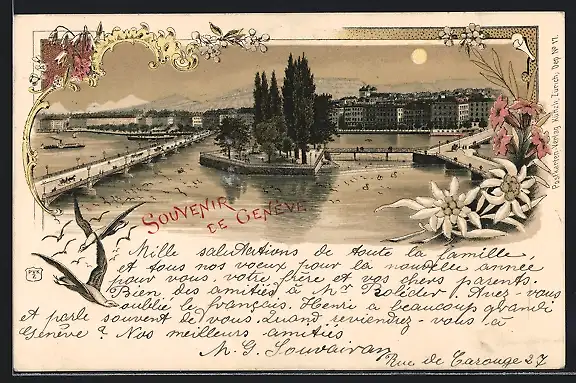 SOUVENIR
DE GENÈVE
Postkarten-Verlag Künzli, Zürich, Dep. No 71.
PVK
Z
Mille salutations de toute la famille,
et tous nos vœux pour la nouvelle année
pour vous, votre frère et vos chers parents.
Bien des amitiés à Mr Bolider. Avez-vous
oublié le français. Henri a beaucoup grandi
et parle souvent de vous. Quand reviendrez-vous à
Genève? Nos meilleurs amitiés
M. G. Souvairan
Rue de Carouge 27